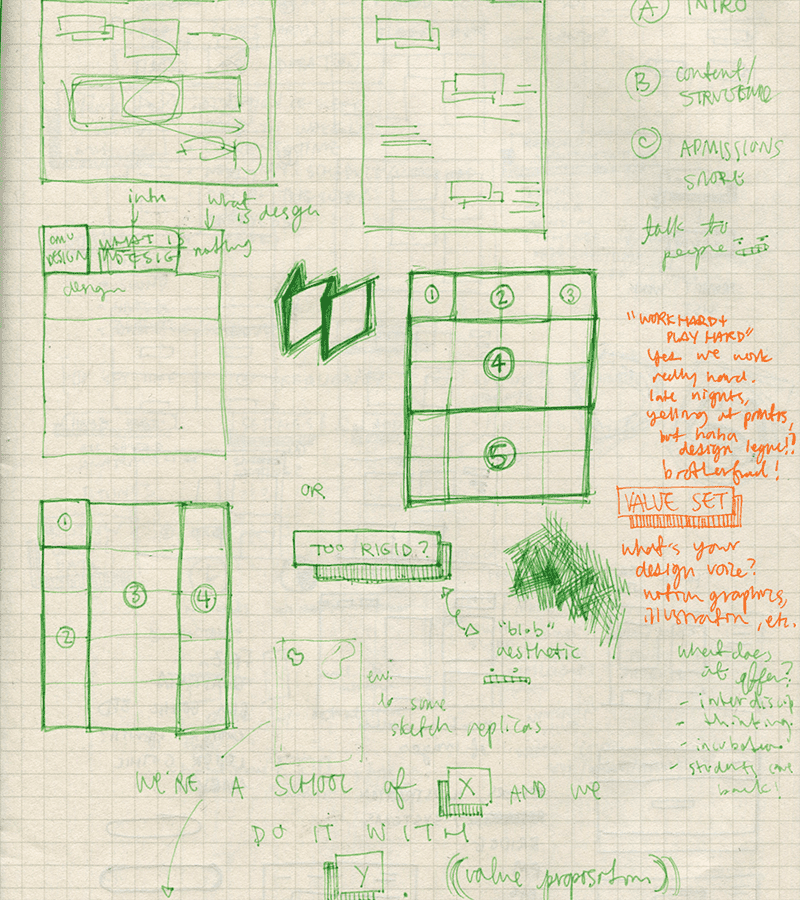 A INTRO
B content/
STRUCTURE
C ADMISSIONS
talk to
people
intro
what
is design
CMU
DESIGN
WHAT IS
nothing
design
1 2 3
4
5
"WORK HARD +
PLAY HARD"
Yes we work
really hard.
late nights,
yelling at printers,
but haha
design legue!!
VALUE SET
what's your
design voice?
motion graphics,
illustration, etc.
OR
TOO RIGID?
"blob"
aesthetic
1
2
3
4
to some
sketch replicas
what does
it offer?
- interdiscip
- thinking
- incubation
- students come
back!
WE'RE A SCHOOL of X AND we
DO IT WITH
Y.
((value proposition))